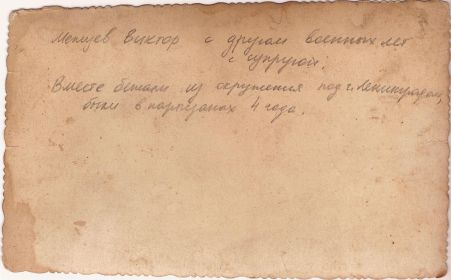 Мепцев Виктор с другом военных лет
с супругой.
Вместе бежали из окружения под г. Ленинградом,
были в партизанах 4 года.